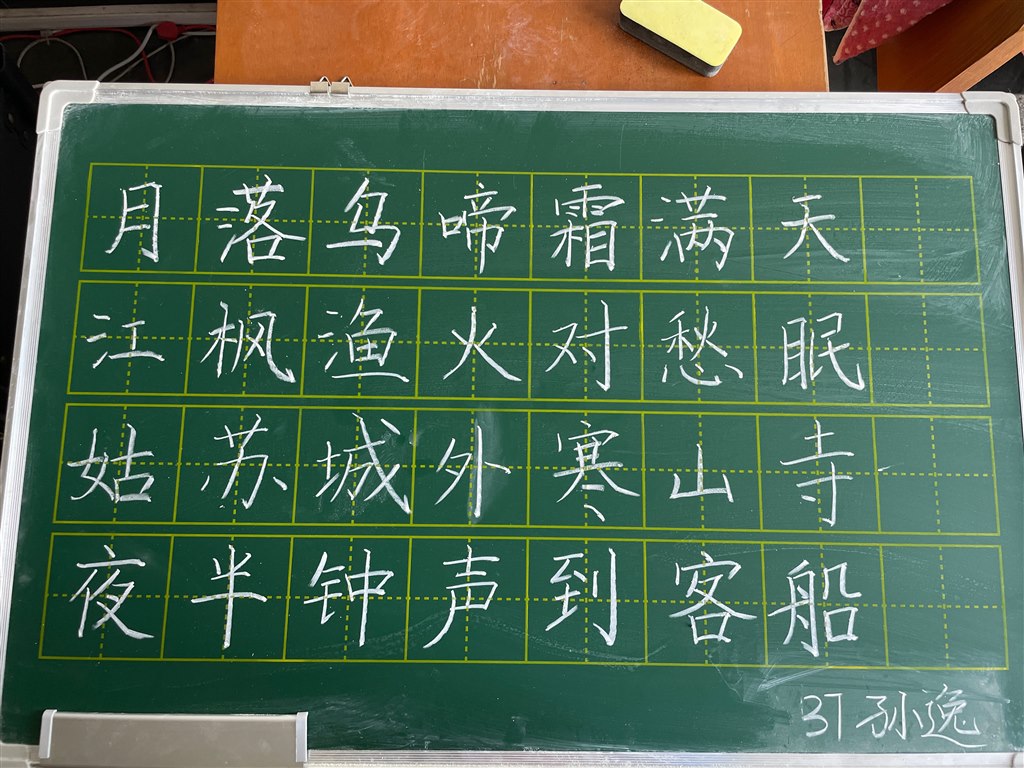 月落乌啼霜满天
江枫渔火对愁眠
姑苏城外寒山寺
夜半钟声到客船
37 孙逸